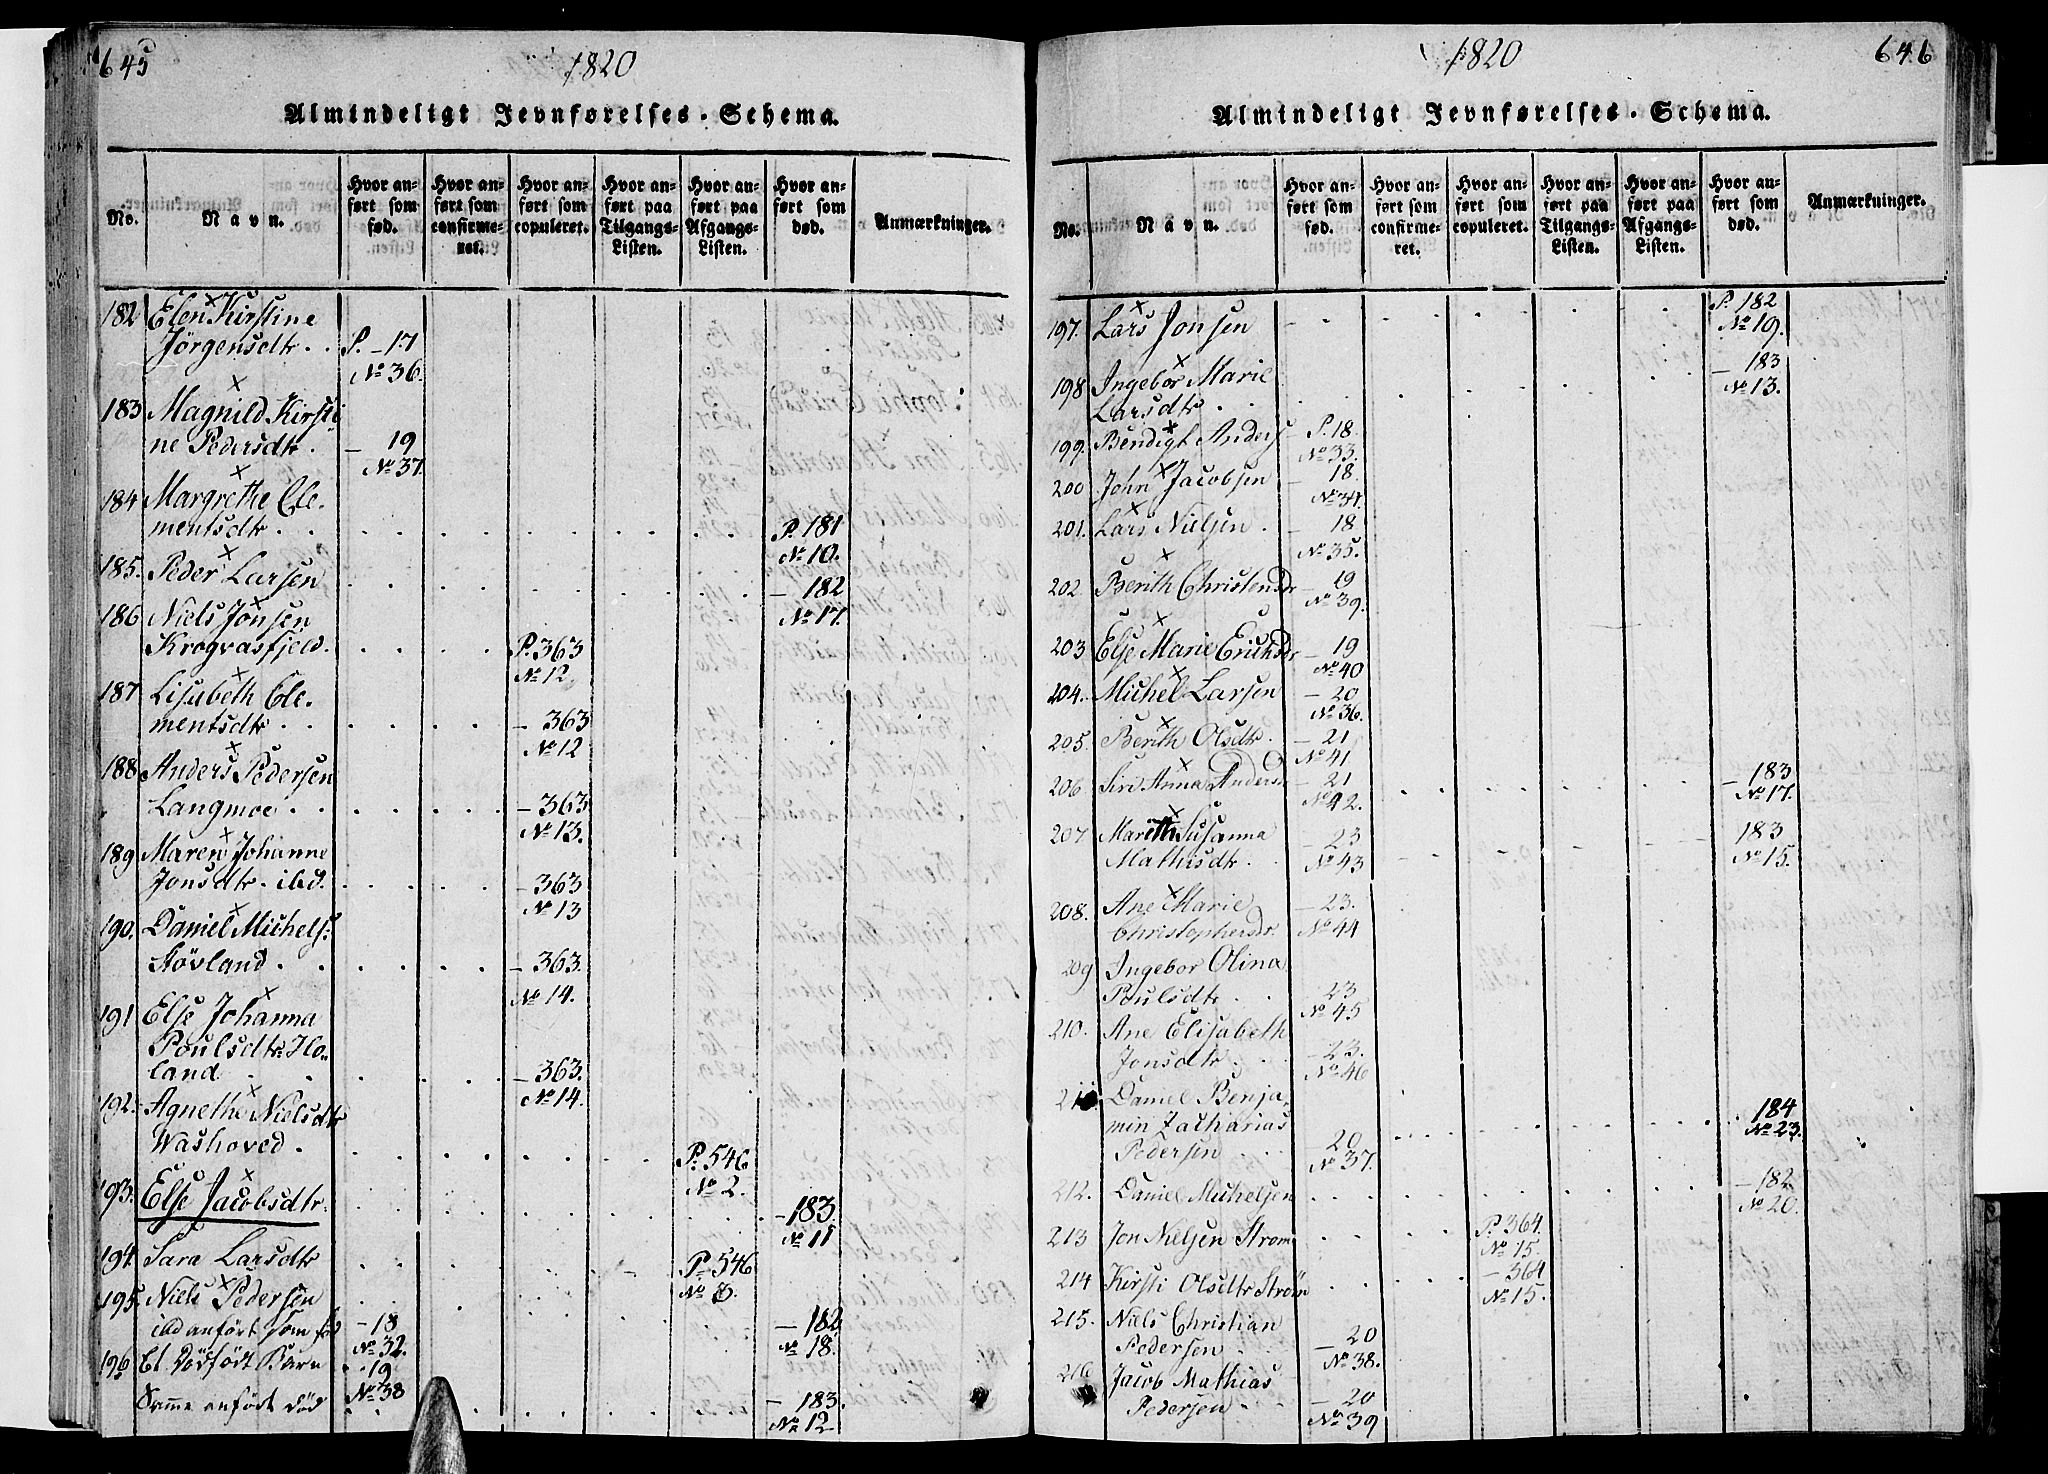 645
1820
Almindeligt Jevnførelses-Schema.
No.
Navn.
Hvor anført som fød.
Hvor anført som confirmeret.
Hvor anført som copuleret.
Hvor anført paa Tilgangs-Listen.
Hvor anført paa Afgangs-Listen.
Hvor anført som død.
Anmærkninger.
182 Elen Kirstine
Jörgensdtr. . P. - 17
No 36.
183 Magnild Kirsti
ne Pedersdtr. - 19
No 37.
184 Margrethe Cle.
mentsdtr . . P. 181
No 10.
185. Peder Larsen - 182
No 17.
186 Niels Jonsen
Krogvasfjeld. P. 363
No 12
187 Lisabeth Cle.
mentsdtr . . - 363
No 12
188 Anders Pedersen
Langmoe . . - 363
No 13.
189 Maren Johanne
Jonsdtr. ibd. - 363
No 13
190. Daniel Michels:
Stövland . . - 363.
No 14.
191 Else Johanna
Poulsdtr. Ho-
land. - 363.
No 14.
192. Agnethe Nielsdtr
Washoved . P. 546
No 2.
193. Else Jacobsdtr. - 183
No 11
194. Sara Larsdtr P. 546
No 3.
195. Niels Pedersen
ibd anfört som föd - 18 - 182
No 32. No 18.
196 Et Dödfödt Barn - 19
No 38
Samme anfördt död - 183.
No 12
1820
646
Almindeligt Jevnførelses-Schema.
No.
Navn.
Hvor anført som fød.
Hvor anført som confirmeret.
Hvor anført som copuleret.
Hvor anført paa Tilgangs-Listen.
Hvor anført paa Afgangs-Listen.
Hvor anført som død.
Anmærkninger.
197. Lars Jonsen P. 182
No 19.
198 Ingebor Marie - 183
Larsdtr . . No 13.
199. Bendigt Anders P. 18.
No 33.
200 John Jacobsen - 18.
No 34.
201. Lars Nielsen . - 18.
No 35.
202 Berith Christensdr - 19
No 39.
203 Else Marie Erichsdr - 19
No 40
204. Michel Larsen - 20
No 36.
205. Berith Olsdtr. - 21
No 41
206 Siri Anna Andersdr - 21 - 183
No 42. No 17.
207 Mareth Susanna - 23 183
Mathisdtr. No 43 No 15.
208. Ane Marie - 23.
Christophersdr. No 44
209 Ingebor Olina
Poulsdtr . . 23
No 45
210. Ane Elisabeth
Jonsdtr . . - 23.
No 46
211 Daniel Benja
min Zacharias 184
No 23.
Pedersen . . 20
No 37.
212. Daniel Michelsen - 182
No 20.
213 Jon Nielsen Strøm P. 364.
No 15.
214 Kirsti Olsdtr Strøm - 364
No 15.
215. Niels Christian
Pedersen . - 20
No 38.
216 Jacob Mathias
Pedersen . - 20
No 39